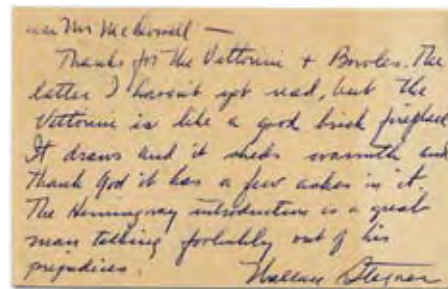 Dear Mr McDowell —
Thanks for the Vittorini + Bowles. The
latter I haven't yet read, but the
Vittorini is like a good brick fireplace
It draws and it sheds warmth and
thank God it has a few ashes in it.
The Hemingway introduction is a great
man talking forcibly out of his
prejudices.
Wallace Stegner